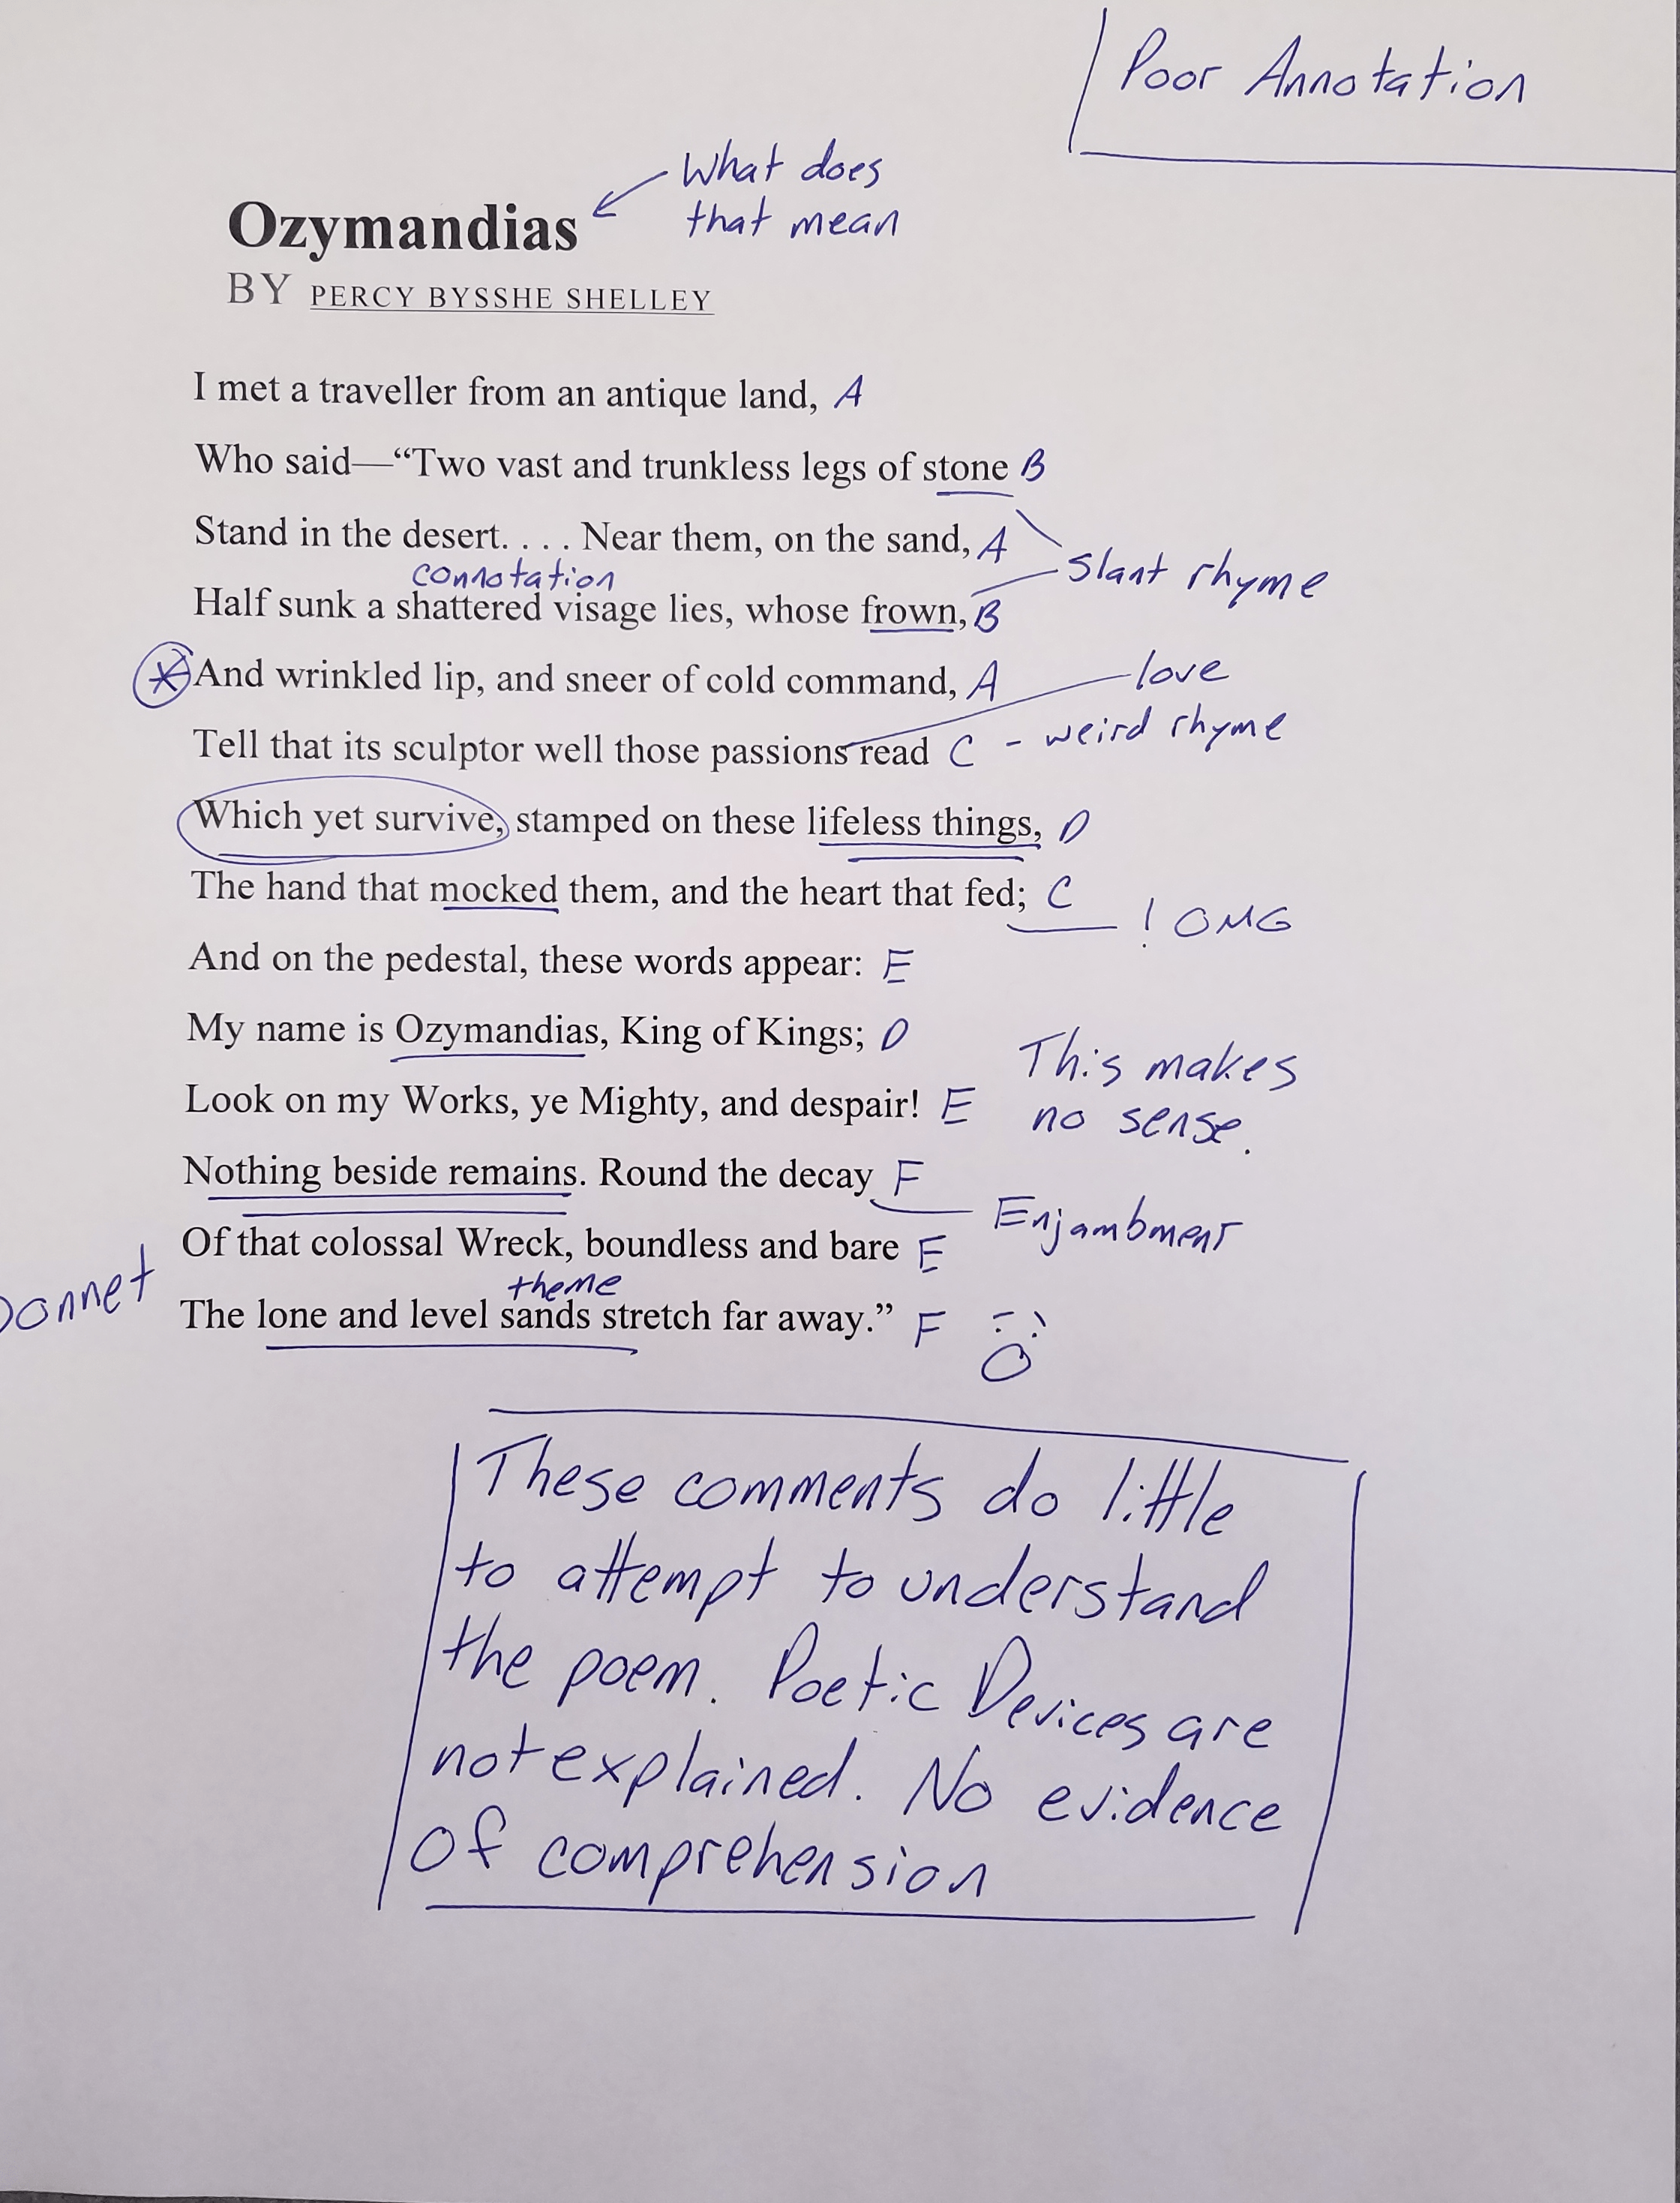 Poor Annotation
What does
that mean
Ozymandias
BY PERCY BYSSHE SHELLEY
I met a traveller from an antique land, A
Who said—“Two vast and trunkless legs of stone B
Stand in the desert. . . . Near them, on the sand, A
Slant rhyme
connotation
Half sunk a shattered visage lies, whose frown, B
And wrinkled lip, and sneer of cold command, A
love
Tell that its sculptor well those passions read C - weird rhyme
Which yet survive, stamped on these lifeless things, D
The hand that mocked them, and the heart that fed; C
! OMG
And on the pedestal, these words appear: E
My name is Ozymandias, King of Kings; D
This makes
no sense.
Look on my Works, ye Mighty, and despair! E
Nothing beside remains. Round the decay F
Enjambment
Of that colossal Wreck, boundless and bare E
theme
The lone and level sands stretch far away.” F
These comments do little
to attempt to understand
the poem. Poetic Devices are
not explained. No evidence
of comprehension